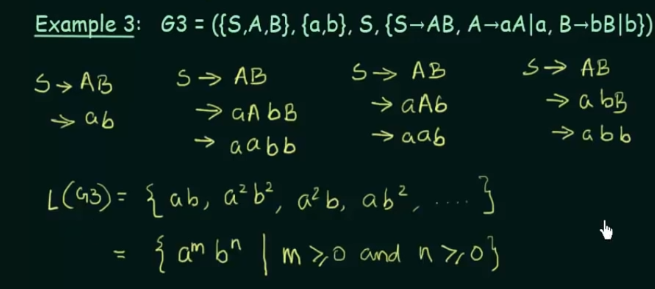 Example 3: G3 = ({S,A,B}, {a,b}, S, {S→AB, A→aA|a, B→bB|b})
S → AB S → AB S → AB S → AB
→ ab → aAbB → aAb → abB
→ aabb → aab → abb
L(G3) = { ab, a²b², a²b, ab², .... }
= { aᵐ bⁿ | m ⩾ 0 and n ⩾ 0}